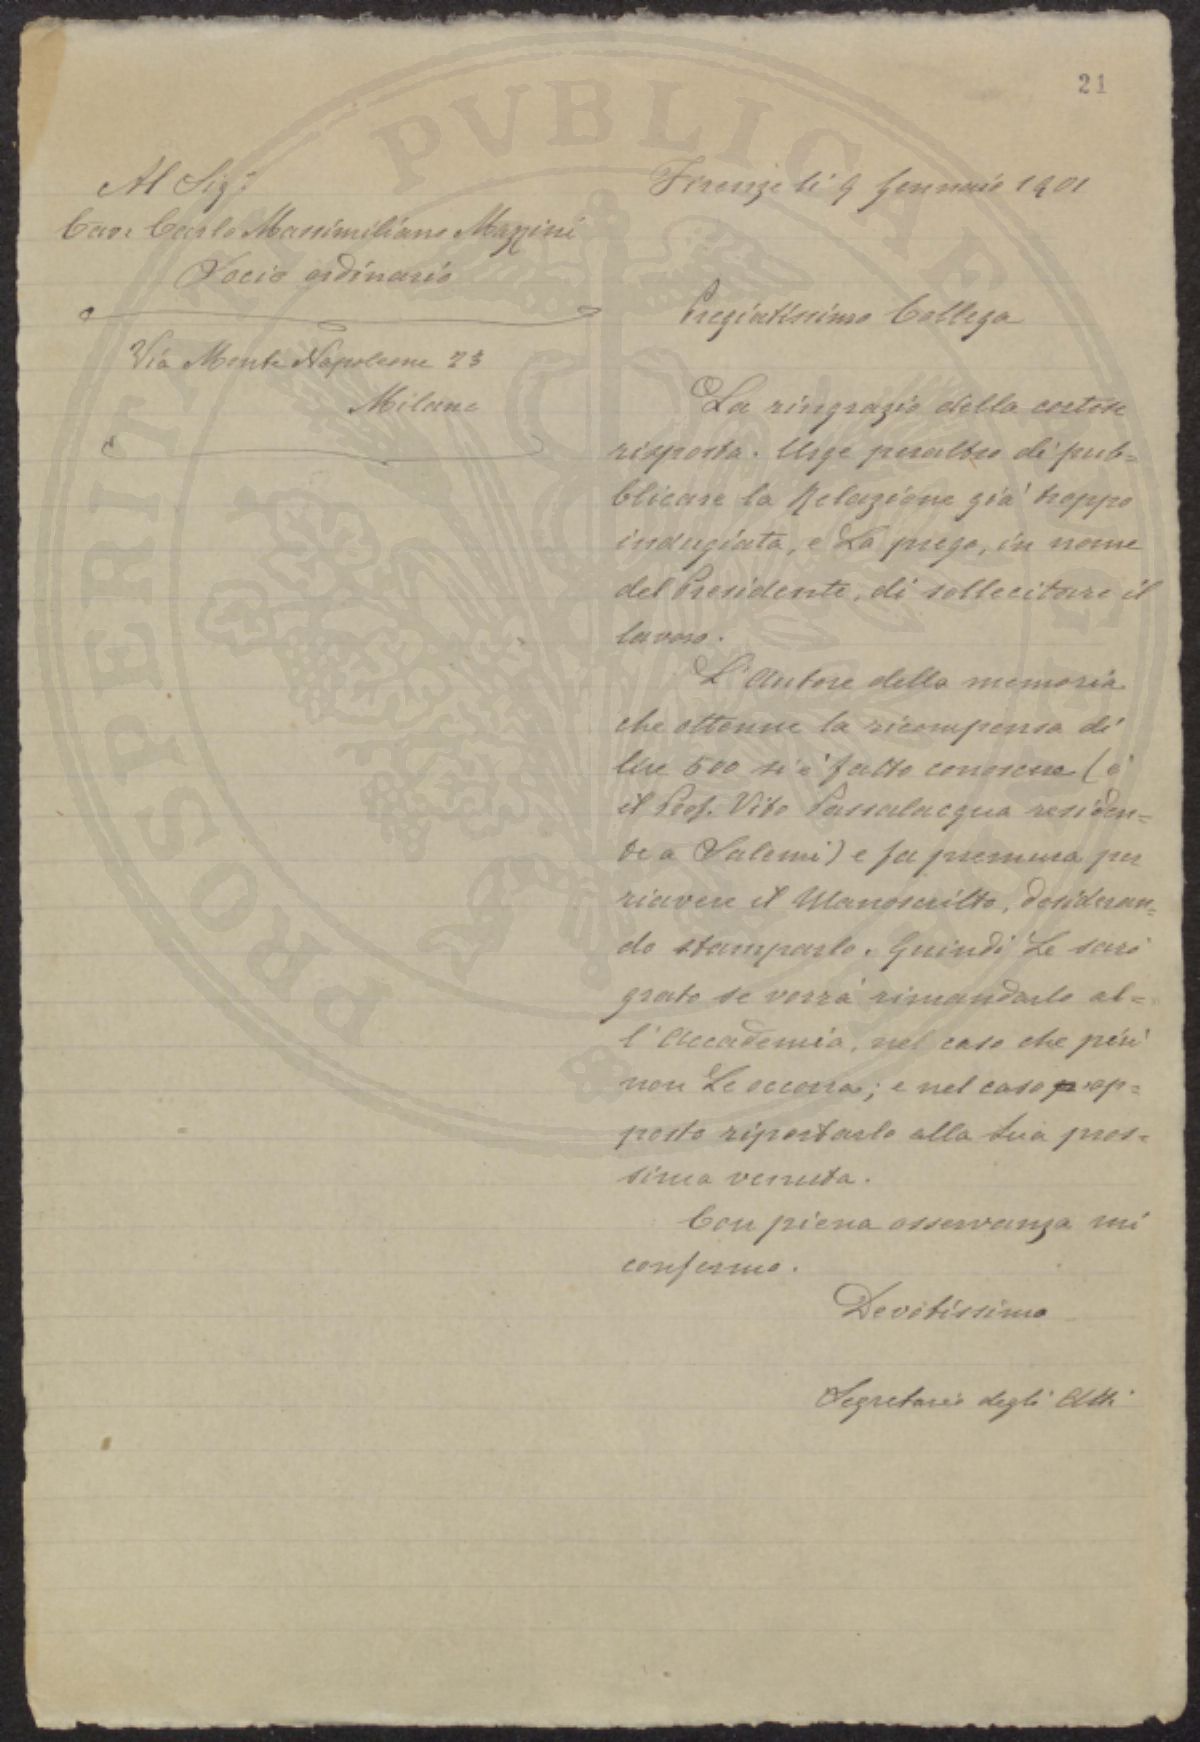 21
Al Sigr
Cav. Carlo Massimiliano Mazzini
Socio ordinario
Via Monte Napoleone 23
Milano
Firenze li 9 Gennaio 1901
Pregiatissimo Collega
La ringrazio della cortese
risposta. Urge peraltro di pub=
blicare la Relazione già troppo
indugiata, e La prego, in nome
del Presidente, di sollecitare il
lavoro.
L'Autore della memoria
che ottenne la ricompensa di
lire 500 si è fatto conoscere (è
il Prof. Vito Passalacqua residen=
te a Salemi) e fa premura per
riavere il Manoscritto, desideran=
do stamparlo. Quindi Le sarò
grato se vorrà rimandarlo al=
l'Accademia, nel caso che più
non Le occorra; e nel caso op=
posto riportarlo alla sua pros=
sima venuta.
Con piena osservanza mi
confermo.
Devotissimo
Segretario degli Atti
PROSPERITATI PVBLICAE